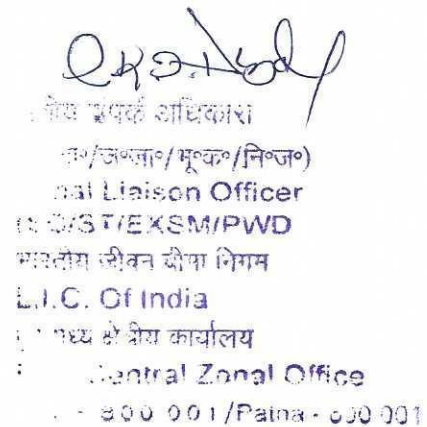 संपर्क अधिकारी
/ज०जा०/भू०क०/नि०ज०)
nal Liaison Officer
/ST/EXSM/PWD
भारतीय जीवन बीमा निगम
L.I.C. Of India
मध्य क्षेत्रीय कार्यालय
Central Zonal Office
- 800 001/Patna - 800 001